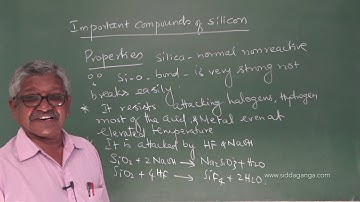 Important Compounds of silicon
Properties silica - normal nonreactive
Si-O- bond - is very strong not
breaks easily
* It resists attacking halogens, Hydrogen
most of the acid & Metal even at
elevated temperature
It is attacked by HF & NaOH
SiO2 + 2NaOH → Na2SiO3 + H2O
SiO2 + 4HF → SiF4 + 2H2O.
www.siddaganga.com